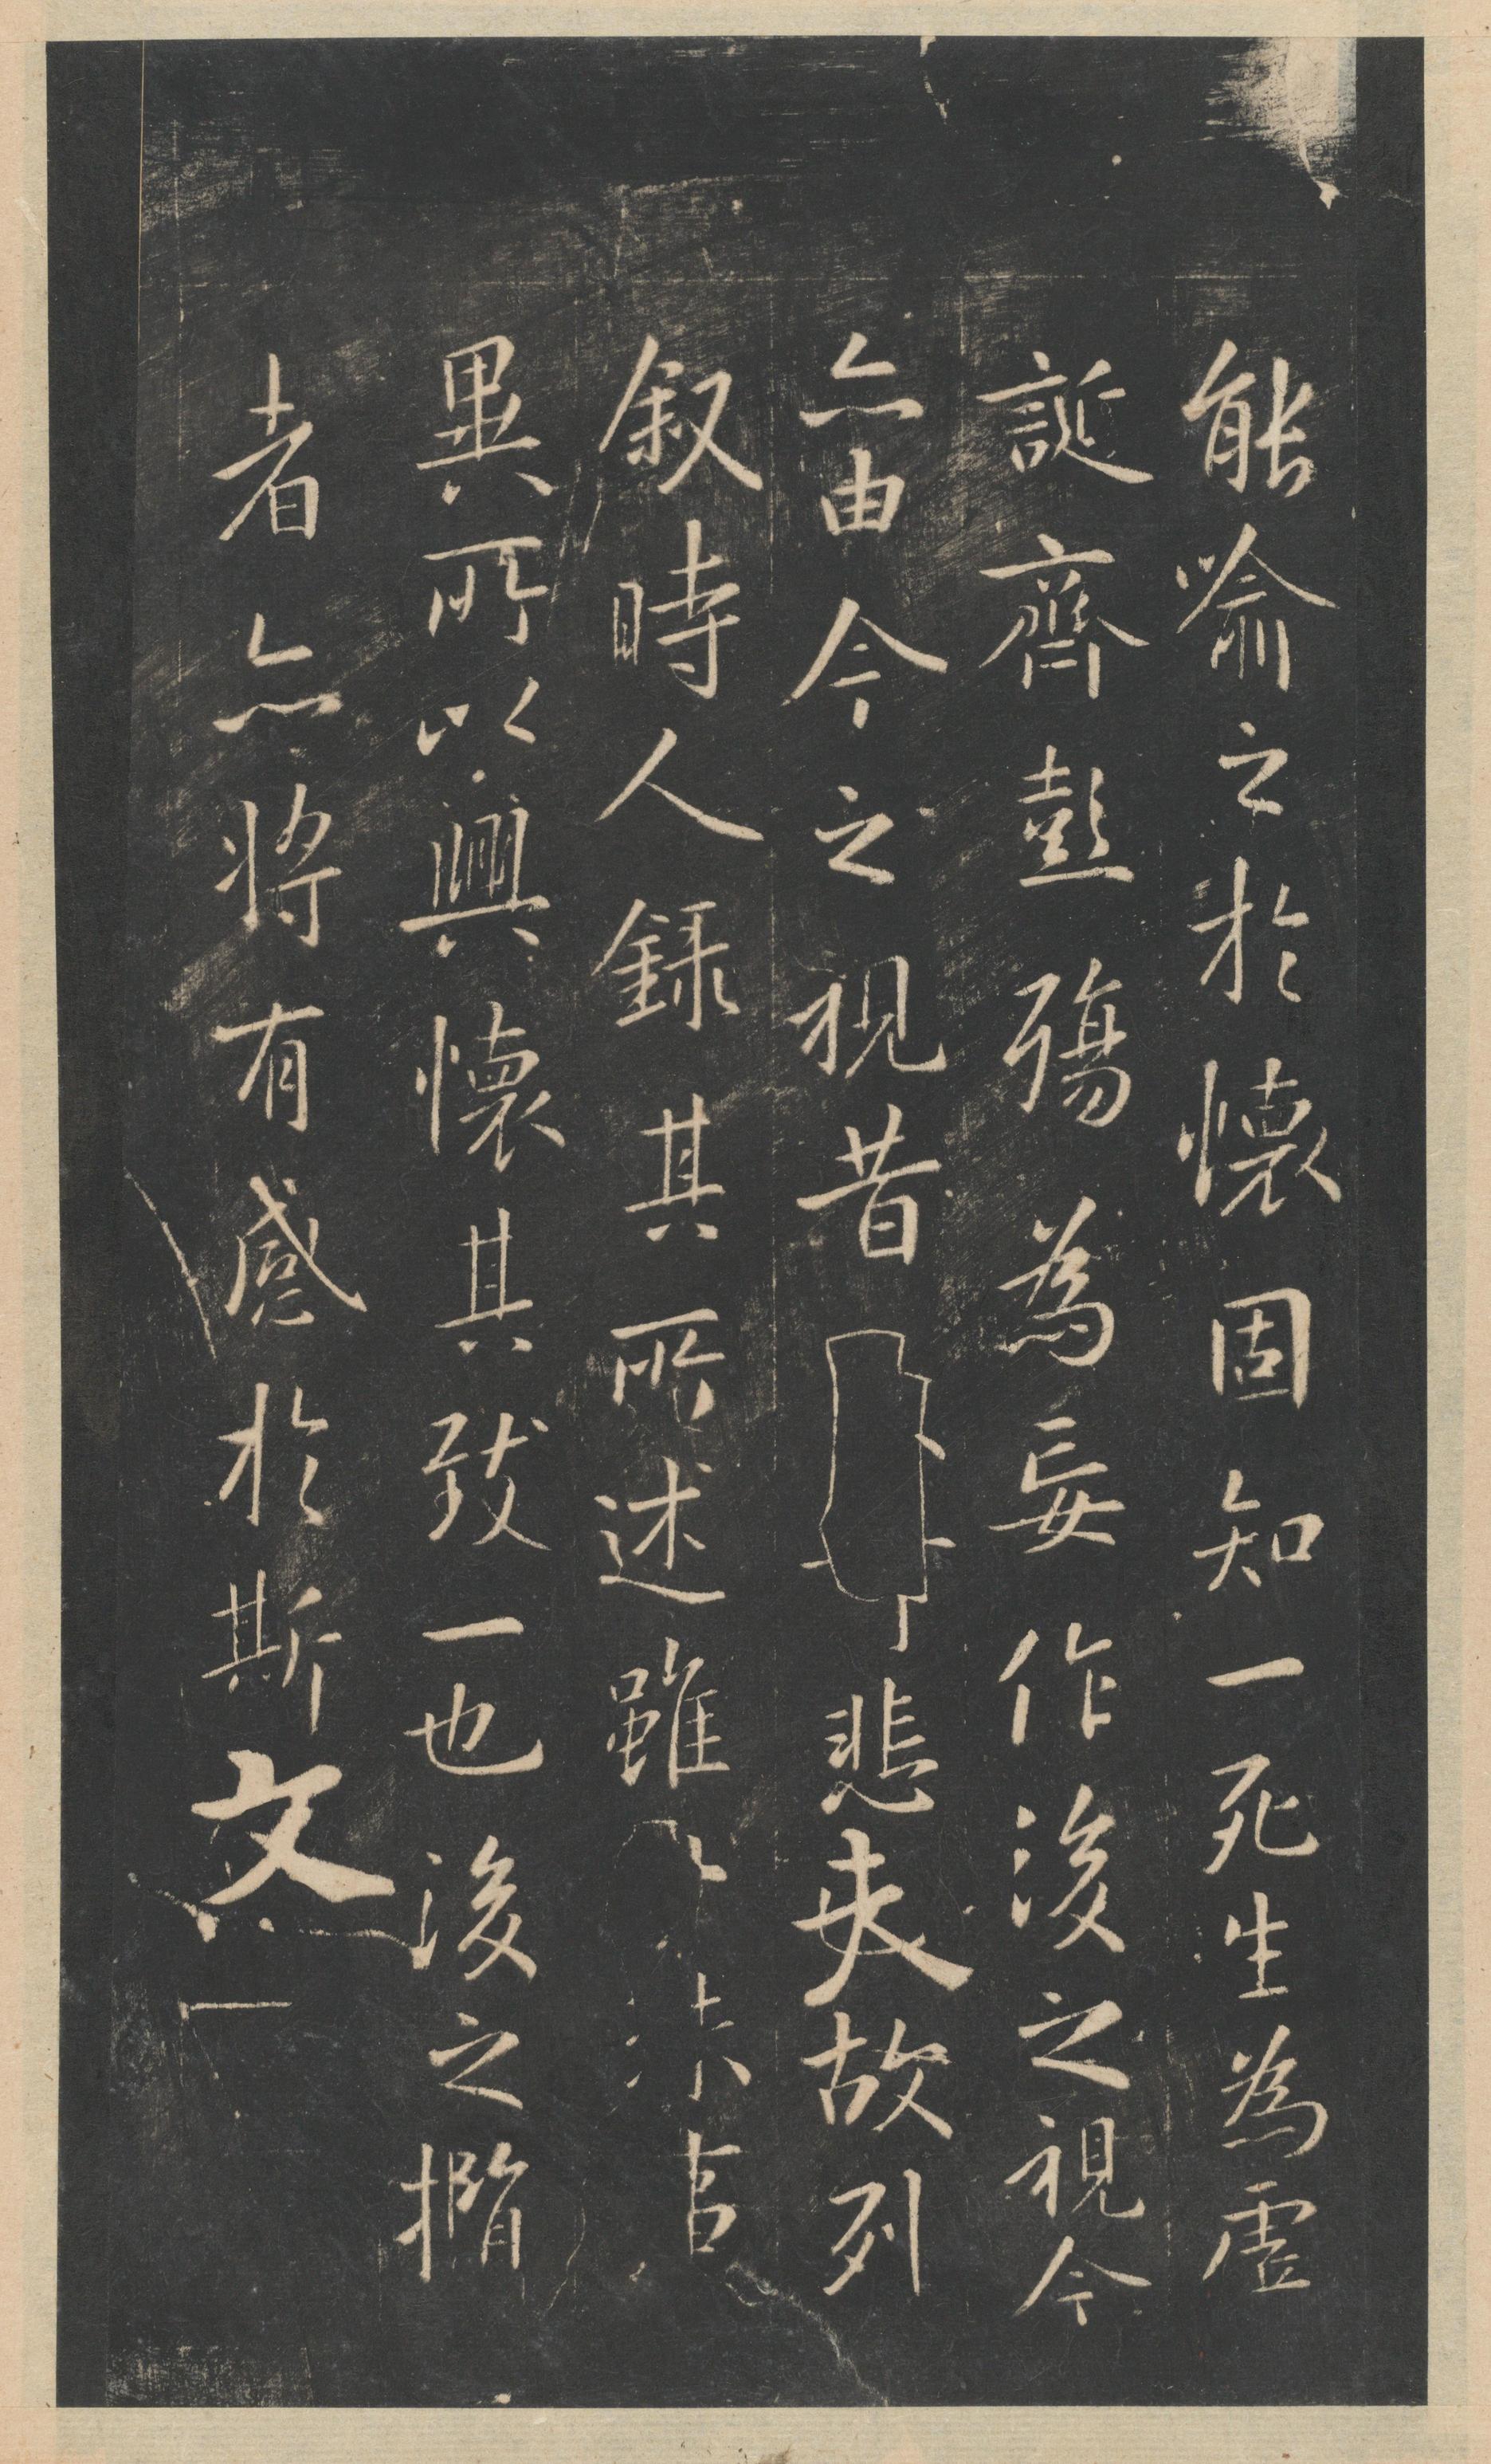 能喻之於懷固知一死生為虛
誕齊彭殤為妄作後之視今
亦由今之視昔悲夫故列
叙時人錄其所述雖殊事
異所以興懷其致一也後之攬
者亦將有感於斯文